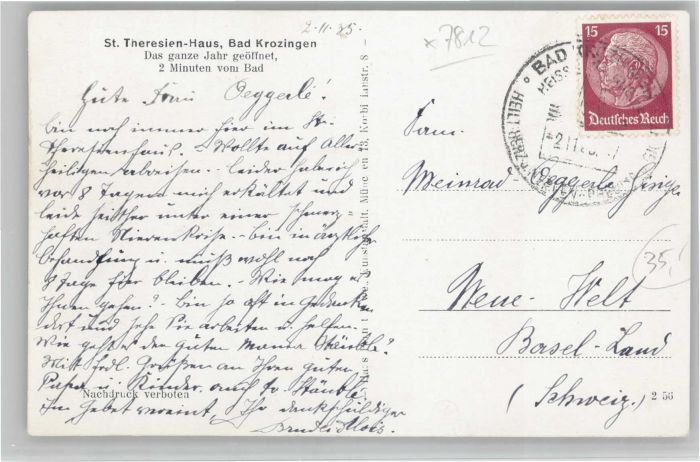 2-11.35.
x7812
St. Theresien-Haus, Bad Krozingen
Das ganze Jahr geöffnet,
2 Minuten vom Bad
Gute Frau Oeggerlé!
bin noch immer hier im St.
Theresienhaus. – Wollte auf Aller-
heiligen abreisen. – leider habe ich
vor 8 Tagen mich erkältet und
leide seither unter einer schmerz-
haften Nierenkrise. – bin in ärztlicher
behandlung u. muß wohl noch
8 Tage hier bleiben. Wie mag es
Ihnen gehen? bin so oft in Gedanken
dort und sehe Sie arbeiten u. helfen.
Wie geht es der guten Mama
Mit frdl. Grüßen an Ihren guten
Papa u. Kinder auch
Im Gebet vereint, Ihr dankschuldiger
Bruder Alois.
Nachdruck verboten
Korbi iarstr. 8 –
15 15
Deutsches Reich
BAD
HEISS
HEILT HERZ
Fam.
Meinrad Oeggerle
35,-
Neue-Welt
Basel-Land
(Schweiz.)
2 56